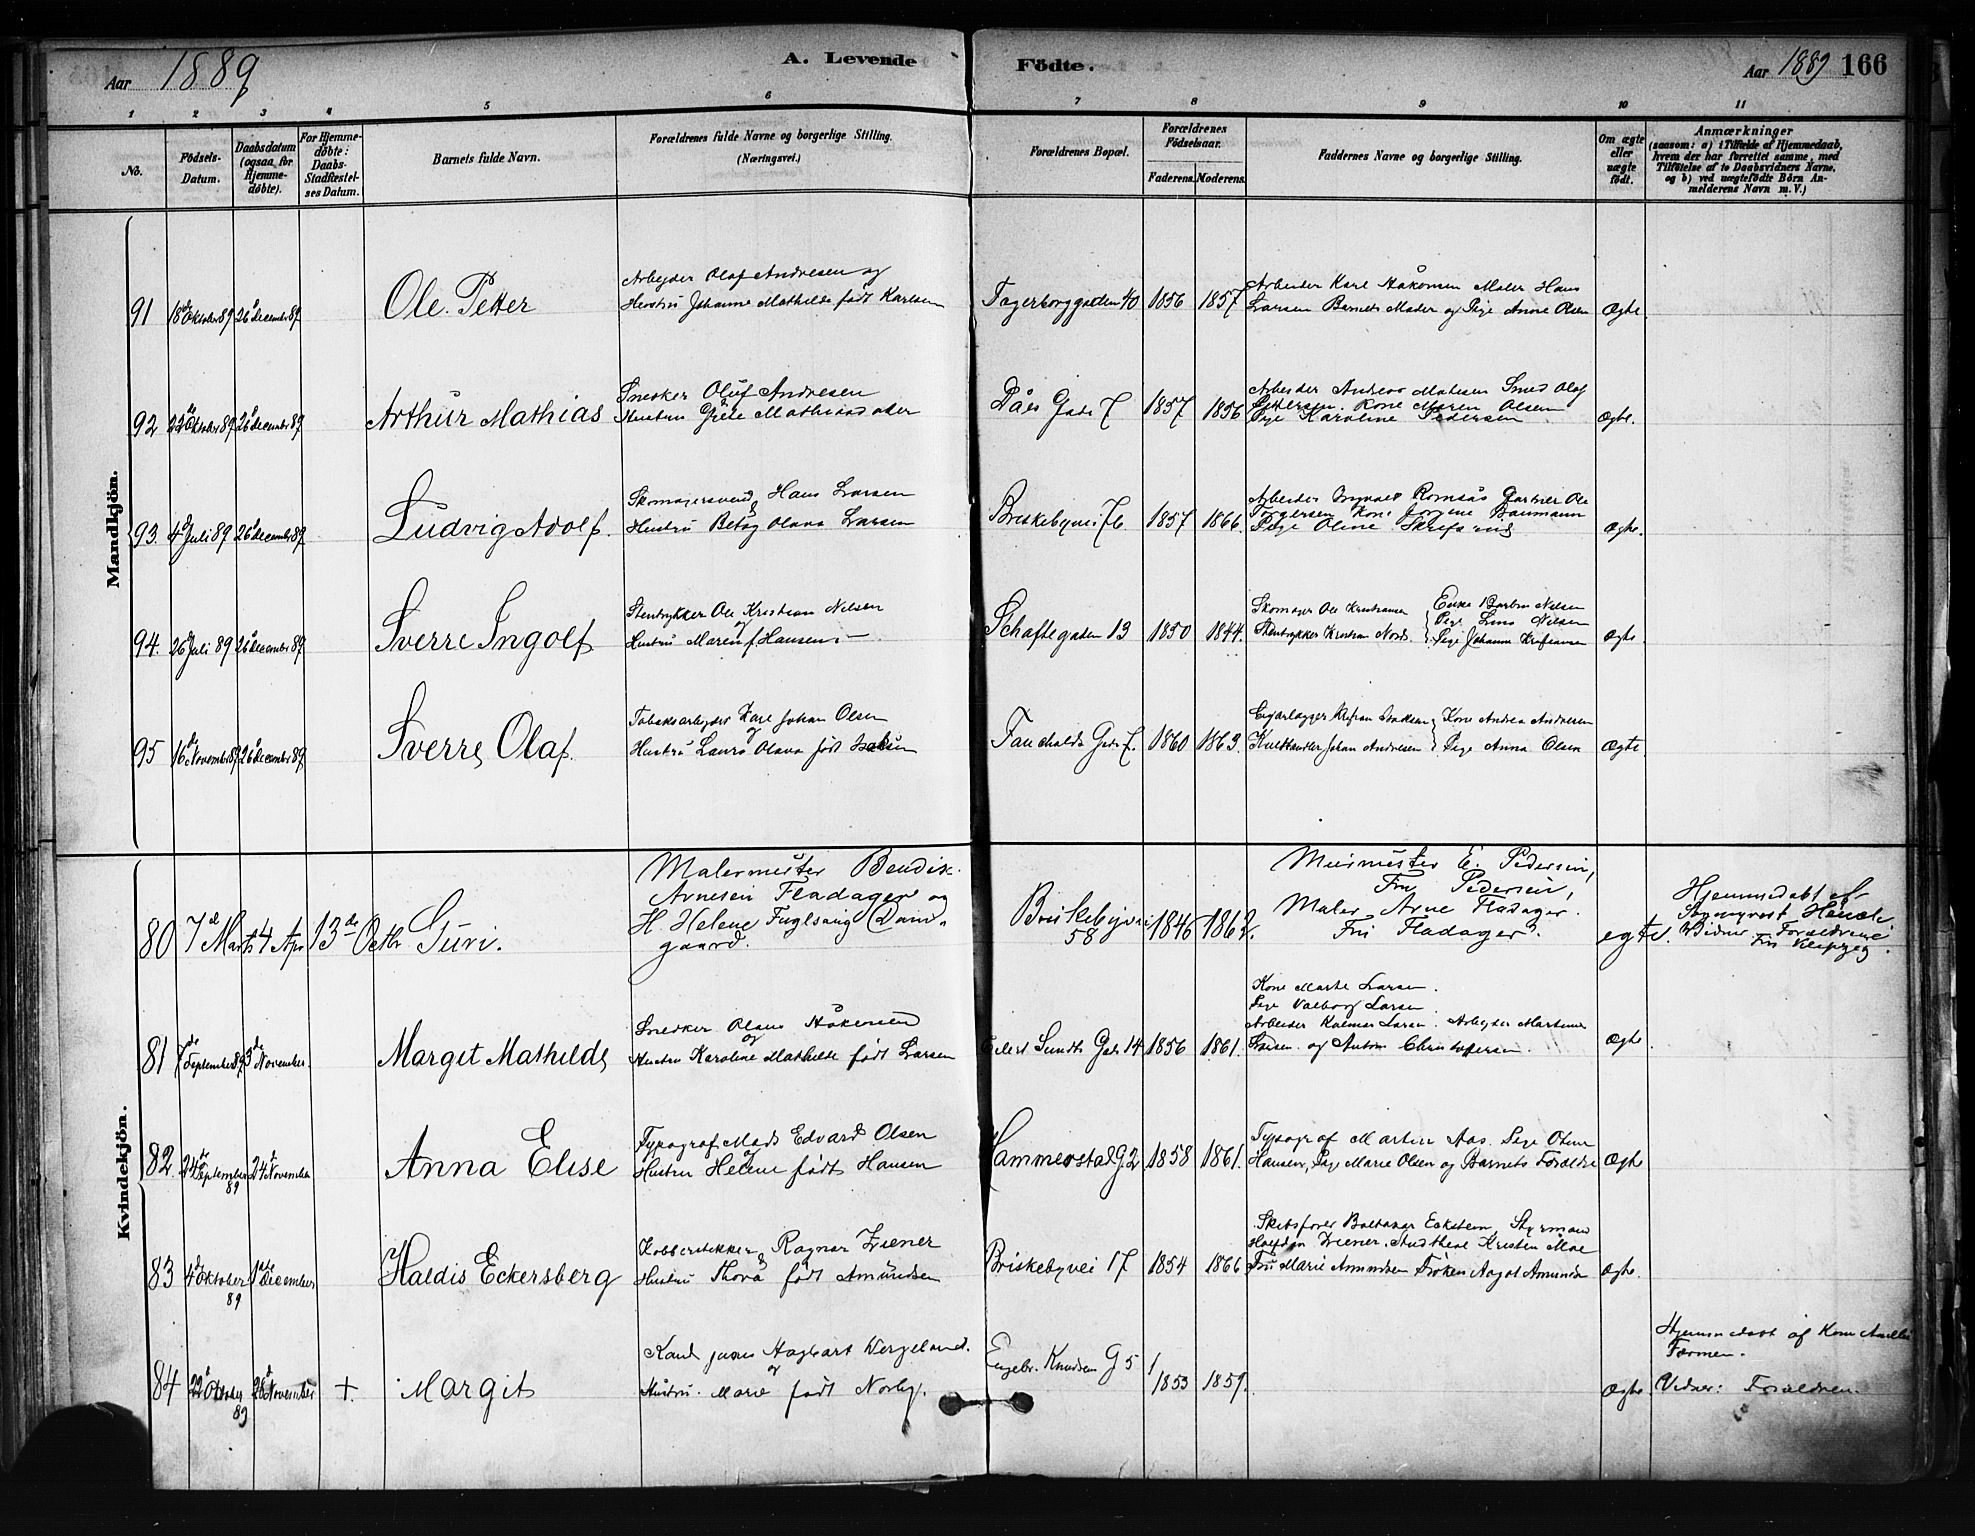 Aar 1889 A. Levende Födte. Aar 1889 166
1 2 3 4 5 6 7 8 9 10 11
No. Fødsels-Datum. Daabsdatum (ogsaa for Hjemme-døbte). For Hjemme-døbte: Daabs-Stadfæstel-ses Datum. Barnets fulde Navn. Forældrenes fulde Navne og borgerlige Stilling. (Næringsvei.) Forældrenes Bopæl. Forældrenes Fødselsaar. Faderens. Moderens. Faddernes Navne og borgerlige Stilling. Om ægte eller uægte født. Anmærkninger (saasom: a) i Tilfælde af Hjemmedaab, hvem der har forrettet samme, med Tilføielse af to Daabsvidners Navne, og b) ved uægtefødte Börn An-melderens Navn m. V.)
Mandkjön.
91 18de Oktober 89 26de December 89 Ole Petter
Arbeyder Olaf Andresen og
Hustru Johanne Mathilde født Karlsen
Fagerborggaden 40 1856 1857
Arbeider Karl Håkonsen Maler Hans
Larsen Barnets Moder og Pige Anne Olsen
Ægte
92 22de Oktober 89 26de December 89 Arthur Mathias
Snedker Oluf Andresen
Hustru Grete Mathiasdatter
Dåes Gade 7 1857 1856
Arbeider Andreas Mathisen Smed Olaf
Pettersen. Kone Maren Olsen
Pige Karoline Pedersen
Ægte.
93. 4de Juli 89 26de December 89 Ludvig Adolf.
Skomagersvend Hans Larsen
& Hustru Betsy Olava Larsen
Briskebyvei 76 1857 1866.
Arbeider Ingvald Romsås Gartner Ole
Torgersen Kone Jorgine Baumann
Pige Oline Skrefsrud
Ægte.
94. 26de Juli 89 26de December 89 Sverre Ingolf
Stentrykker Ole Kristian Nilsen
og Hustru Maren f. Hansen
Schaftegaden 13 1850 1844.
Skomager Ole Kristiansen Enke Barbra Nilsen
Pige Lina Nilsen
Stentrykker Kristian Nord Pige Johanne Kristiansen
Ægte
95 16de November 89 26de December 89 Sverre Olaf
Tobaksarbeyder Karl Johan Olsen
og Hustru Laura Olava født Isaksen
Fauchalds Gade 7. 1860 1863.
Kone Andrea Andresen
Kulhandler Johan Andresen Pige Anna Olsen
Ægte
Kvindekjön.
80 7de Marts 4 Apr 13de Octbr. Guri.
Malermester Bendik
Arnesen Fladager og
H. Helene Fuglsang Dam-
gaard.
Briskebyvei
58 1846 1862.
Murmester E. Pedersen,
Fru Pedersen,
Maler Arne Fladager.
Fru Fladager.
egte.
Hjemmedøbt af
Sogneprest Heuch
Vidner Forældrene
Fru
81 7de September 89 3de November. Margit Mathilde
Snedker Olaus Håkensen
og
Hustru Karoline Mathilde født Larsen
Eilert Sundts Gade 14 1856 1861.
Kone Marte Larsen.
Pige Valborg Larsen
Arbeider Kalmar Larsen. Arbeyder Martinus
Larsen og Anton Christofersen.
Ægte
82. 24de September 89 24de November Anna Elise
Typograf Mads Edvard Olsen
og
Hustru Helene født Hansen
Hammerstad G 2 1858 1861.
Typograf Martin Aas. Pige Oline
Hansen, Pige Marie Olsen og Barnets Forældre
Ægte
83 4de Oktober 89 1ste December Haldis Eckersberg
Kobberstikker Ragnar Ziener
& Hustru Thora født Amundsen
Briskebyvei 17 1854 1866
Skibsfører Baltazar Eckstein, Styrmand
Halfdan Ziener. Stud theol Kristen Moe
Fru Marie Amundsen Frøken Aagot Amundsen
Ægte.
84 22de Oktober 89 28de November + Margit
Hagbart Wergeland.
og
Hustru Marie født Norby.
Engebr. Knudsen G 5 1853 1859.
Ægte
Hjemmedøbt af Kone Amalie
Færmen.
Vidner: Forældrene.